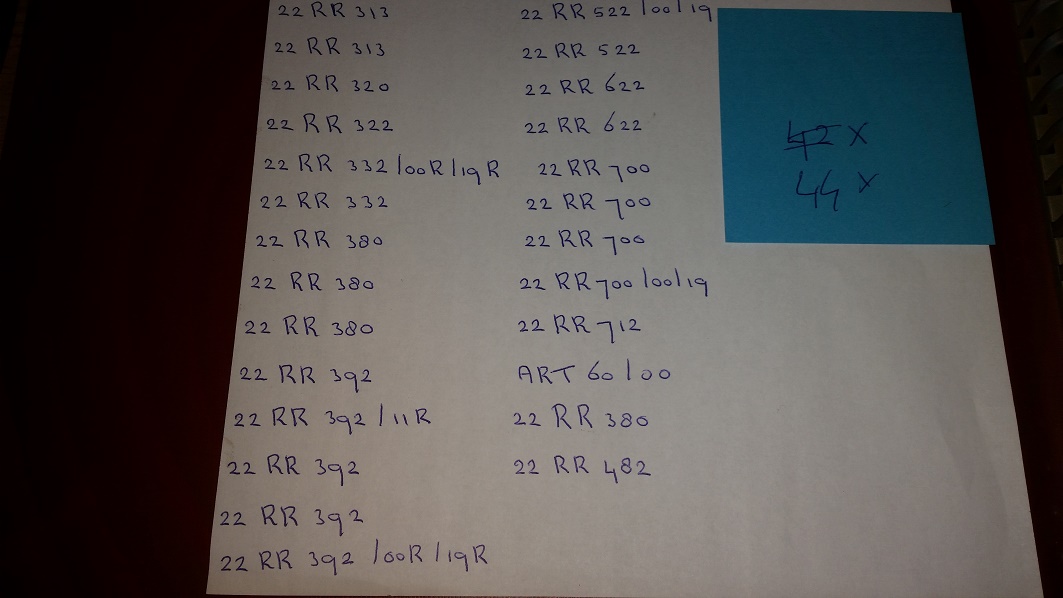 22 RR 313
22 RR 313
22 RR 320
22 RR 322
22 RR 332/00R/19R
22 RR 332
22 RR 380
22 RR 380
22 RR 380
22 RR 392
22 RR 392/11R
22 RR 392
22 RR 392
22 RR 392/00R/19R
22 RR 522/00/19
22 RR 522
22 RR 622
22 RR 622
22 RR 700
22 RR 700
22 RR 700
22 RR 700/00/19
22 RR 712
ART 60/00
22 RR 380
22 RR 482
42 X
44 X